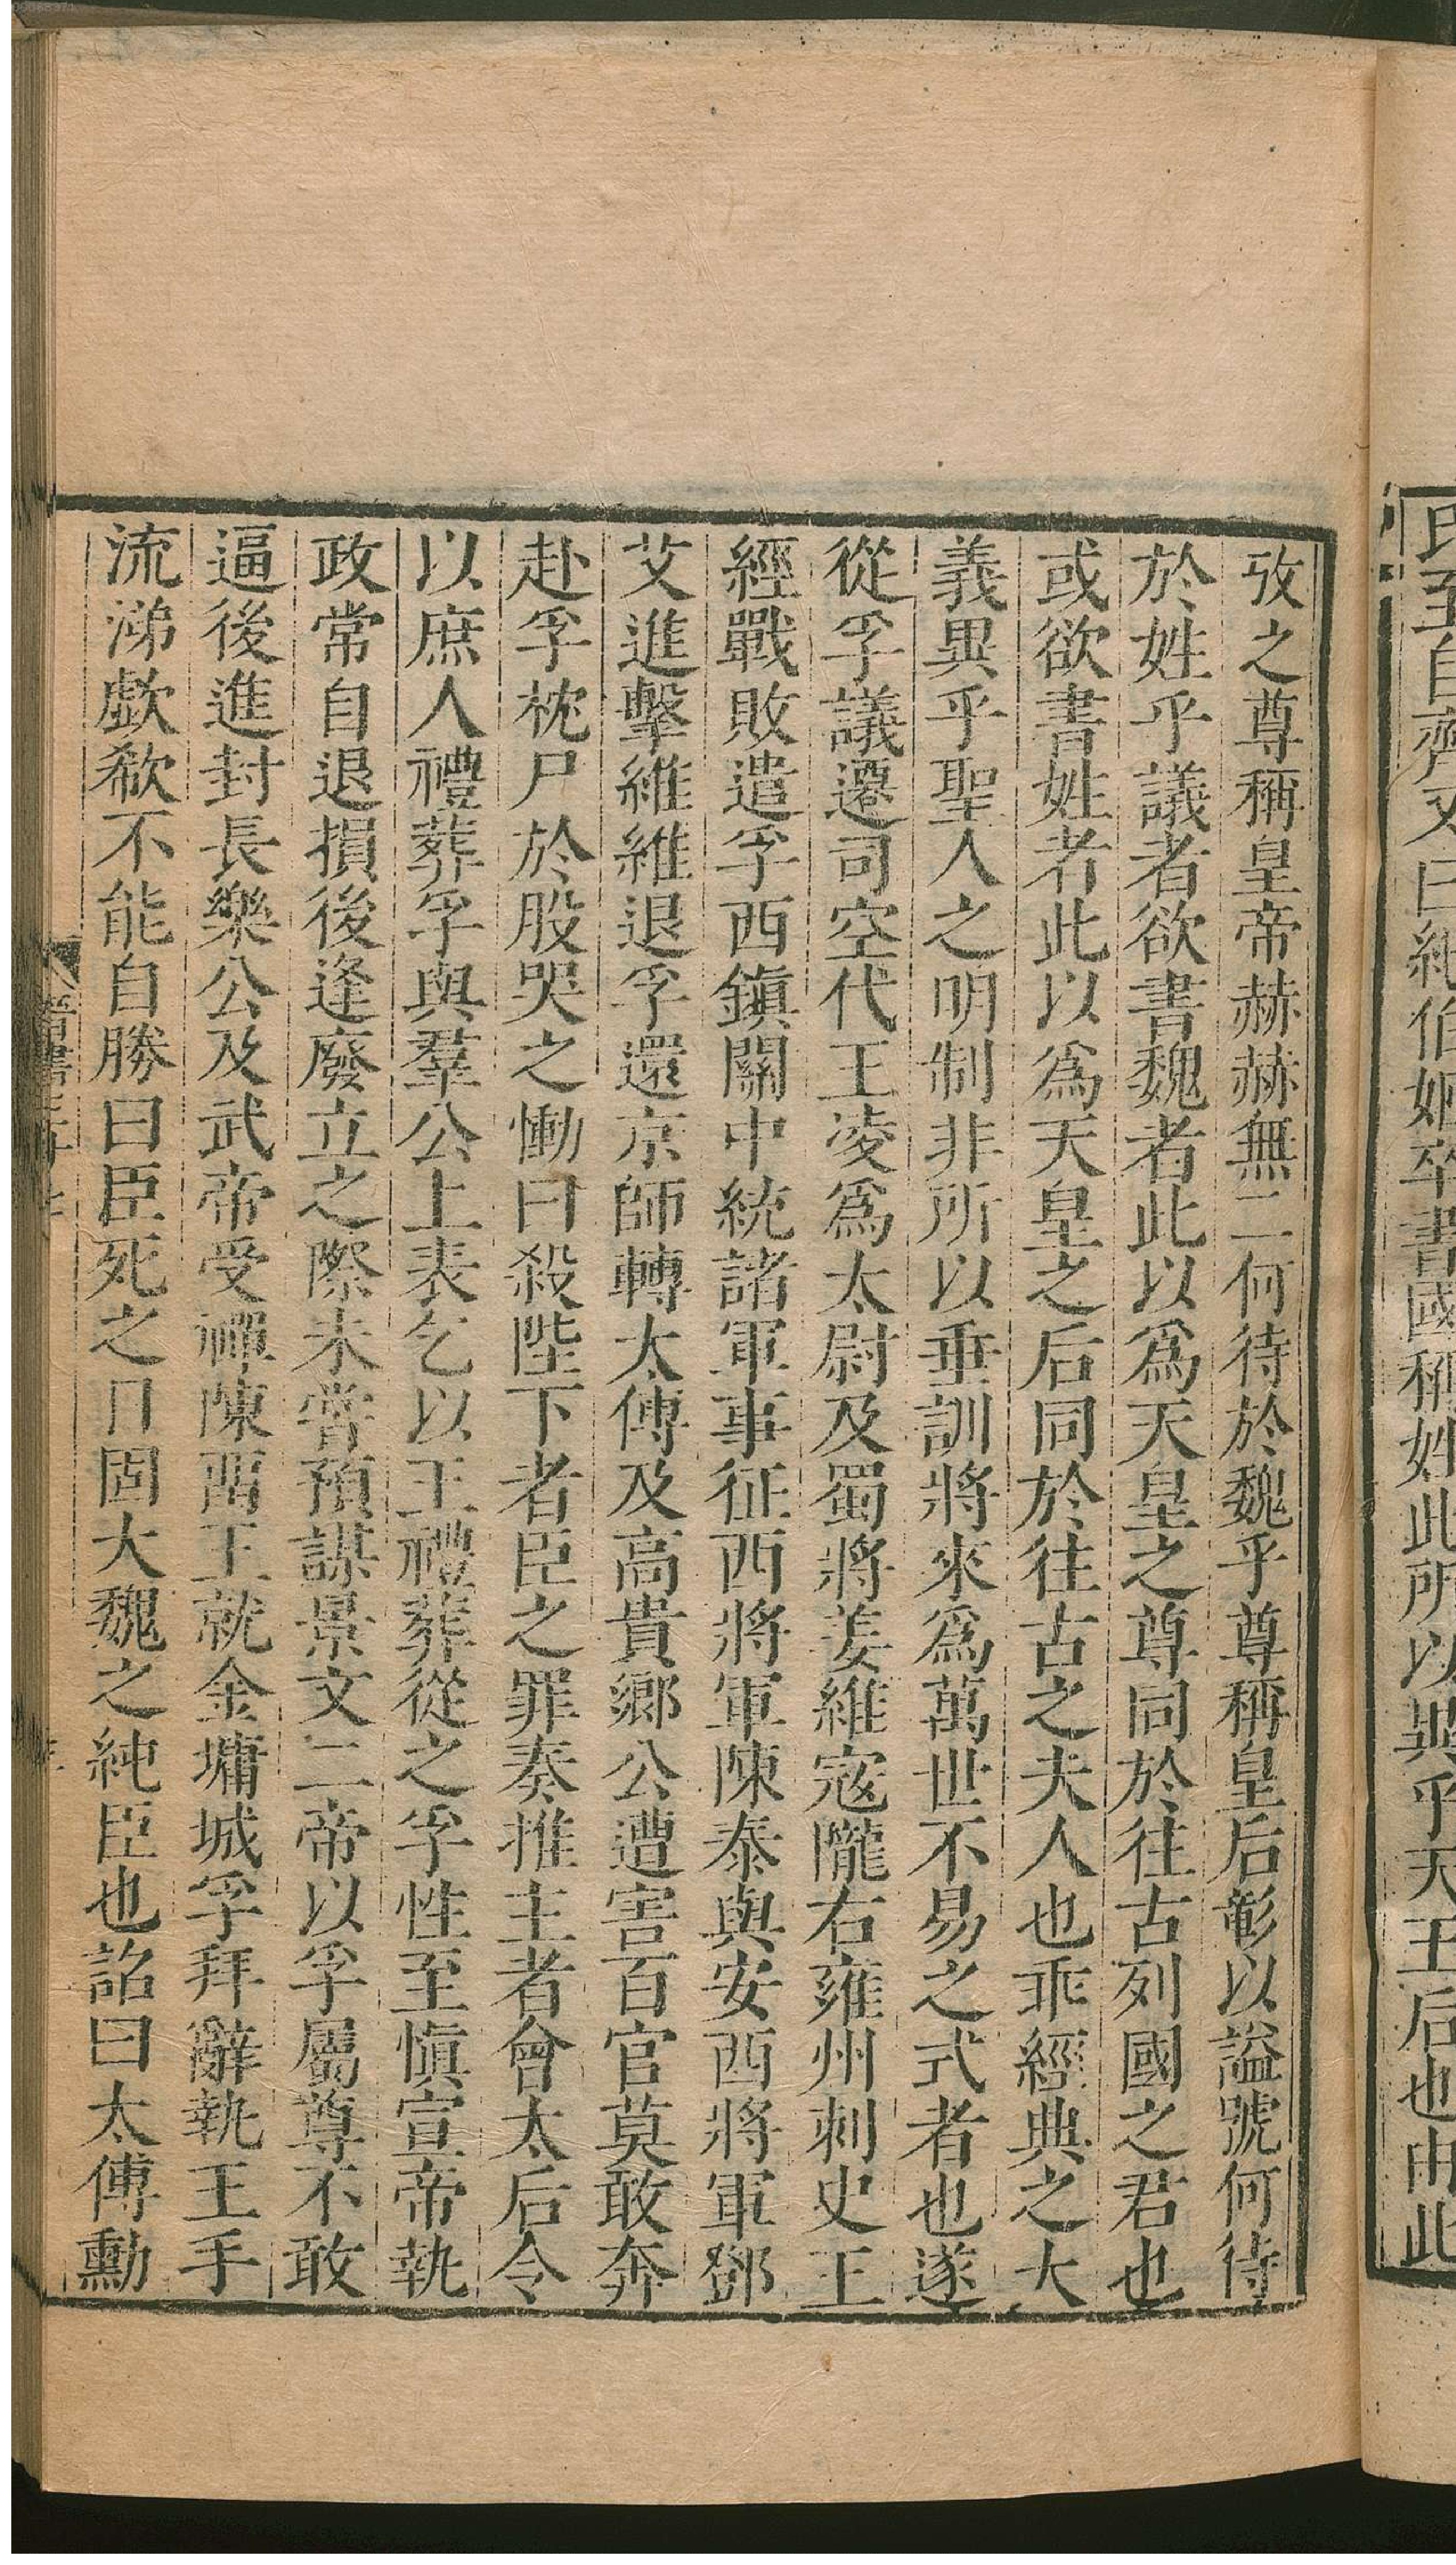 氏至自齊又曰紀伯姬卒書國稱姓此所以異乎天王后也由此
攷之尊稱皇帝赫赫無二何待於魏乎尊稱皇后彰以諡號何待
於姓乎議者欲書魏者此以爲天皇之尊同於往古列國之君也
或欲書姓者此以爲天皇之后同於往古之夫人也乖經典之大
義異乎聖人之明制非所以垂訓將來爲萬世不易之式者也遂
從孚議遷司空代王凌爲太尉及蜀將姜維寇隴右雍州刺史王
經戰敗遣孚西鎮關中統諸軍事征西將軍陳泰與安西將軍鄧
艾進擊維維退孚還京師轉太傅及高貴鄉公遭害百官莫敢奔
赴孚枕尸於股哭之慟曰殺陛下者臣之罪奏推主者會太后令
以庶人禮葬孚與羣公上表乞以王禮葬從之孚性至愼宣帝執
政常自退損後逢廢立之際未嘗預謀景文二帝以孚屬尊不敢
逼後進封長樂公及武帝受禪陳畱王就金墉城孚拜辭執王手
流涕歔欷不能自勝曰臣死之日固大魏之純臣也詔曰太傅勳
晉書